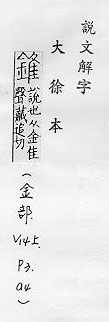 説文解字
大徐本
錐
說也从金隹
聲藏追切
(金部.V14上.P3.a4.)